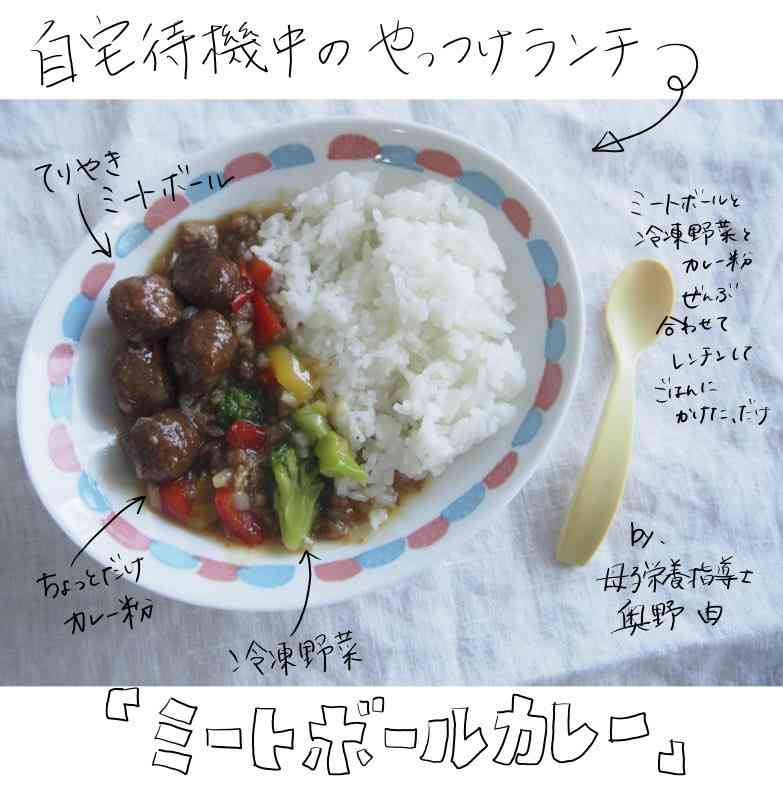 自宅待機中のやっつけランチ
てりやき
ミートボール
ミートボールと
冷凍野菜と
カレー粉
ぜんぶ
合わせて
レンチンして
ごはんに
かけた、だけ
ちょっとだけ
カレー粉
冷凍野菜
by.
母子栄養指導士
奥野 由
『ミートボールカレー』